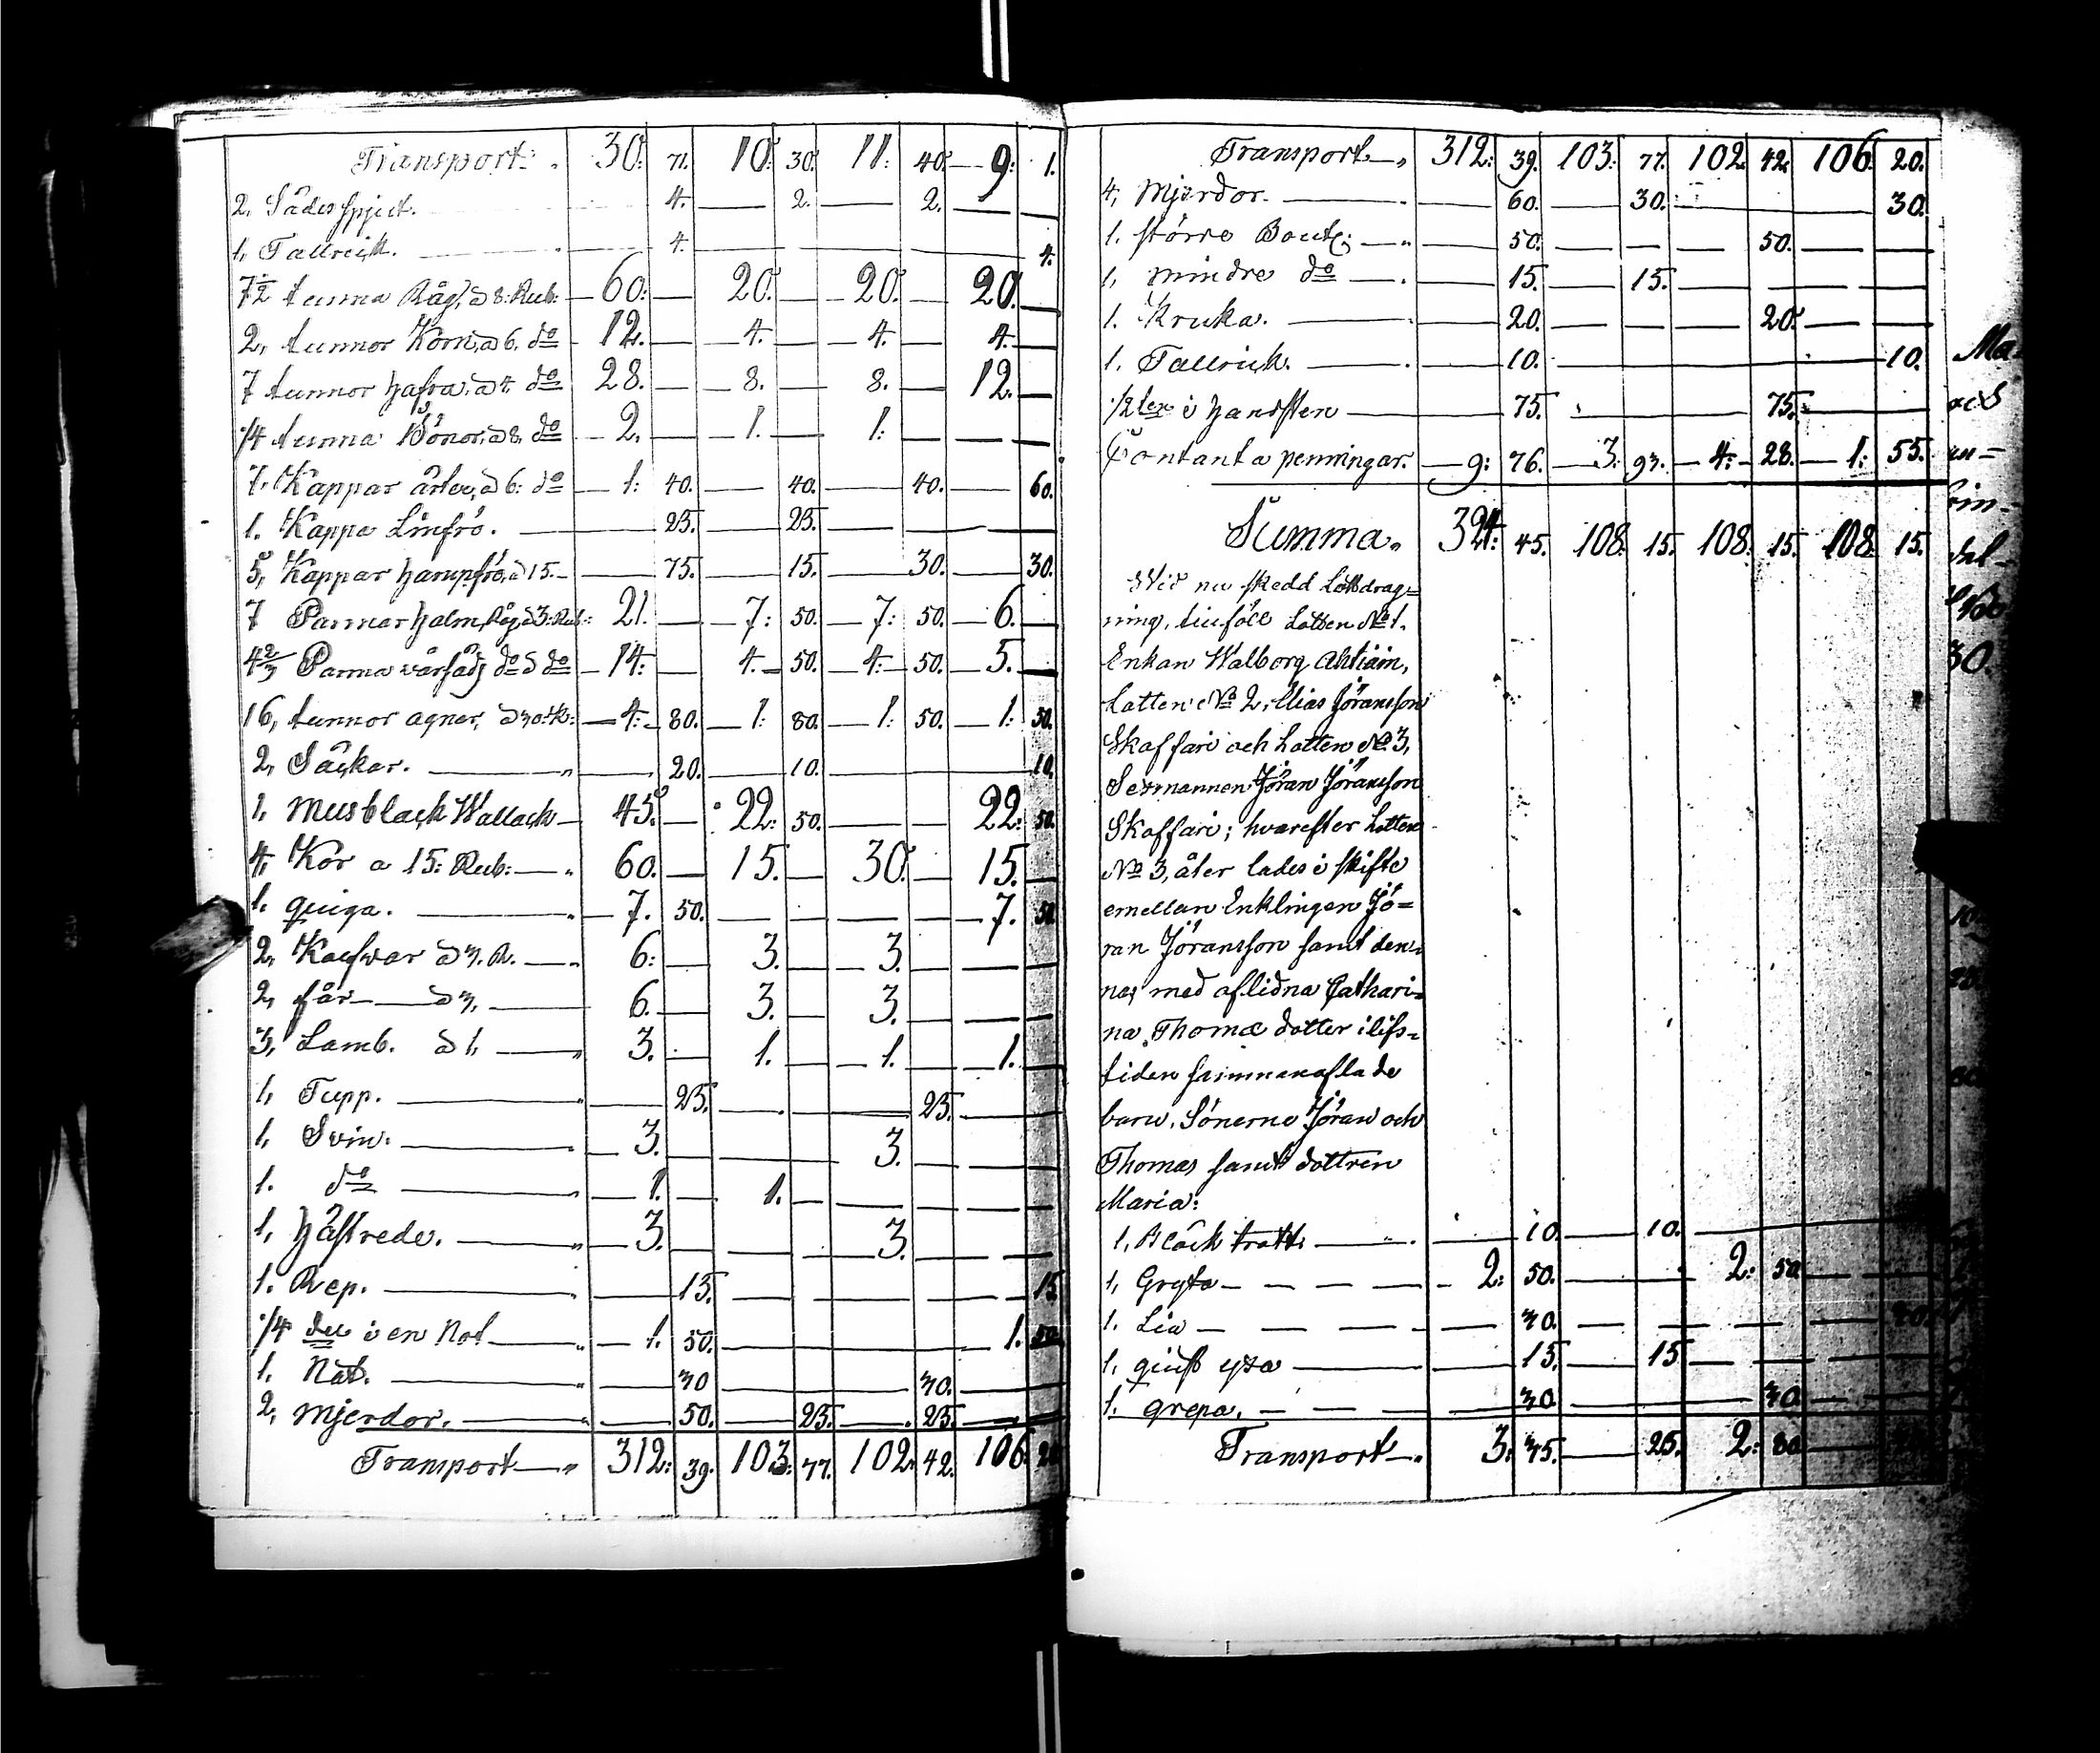 Transport. 30: 71. 10: 30. 11: 40. 9: 1.
2. Sädesspjut. 4. 2. 2.
1, Tallrick. 4. 4.
7½ tunna Råg, à 8: Rub: 60: 20. 20. 20.
2, tunnor Korn, à 6. do 12. 4. 4. 4.
7 tunnor hafra. à 4 do 28. 8. 8. 12.
1/4 tunna Bönor, à 8. do 2. 1. 1.
7. Kappar ärter, à 6: do 1: 40. 40. 40. 60.
1. Kappa Linfrö. 25. 25.
5, Kappar hampfrö, à 15. 75. 15. 30. 30.
7 Parmar halm, Råg à 3: Rub: 21. 7: 50. 7: 50. 6.
4⅔ Parma vårsädz do à do 14: 4. 50. 4: 50. 5.
16, tunnor agnar, à 30: K: 4: 80. 1: 80. 1: 50. 1: 50.
2, Säckar. 20. 10. 10.
1. Musblack Wallack 45. 22: 50. 22: 50.
4, Kor a 15: Rub: 60. 15. 30. 15.
1. quiga. 7. 50. 7. 50.
2, Kalfwar à 3. R. 6: 3. 3.
2, får à 3, 6. 3. 3.
3, Lamb. à 1, 3. 1. 1. 1.
1, Tupp. 25. 25.
1, Svin. 3. 3.
1. do 1. 1.
1, häfrede. 3. 3.
1. Rep. 15. 15
1/4 del i en Not 1. 50. 1. 50.
1. Nät. 30 30.
2, Mjerdor. 50. 25. 25.
Transport 312: 39. 103: 77. 102: 42. 106: 20
Transport 312: 39. 103: 77. 102. 42. 106. 20.
4, Mjerdor. 60. 30. 30.
1. större Boutl: 50. 50.
1, mindre do 15. 15.
1. Kruka. 20. 20.
1. Tallrick. 10. 10.
1/2 len i handsten 75. 75.
Contanta penningar. 9: 76. 3. 93. 4: 28. 1: 55.
Summa. 324: 45. 108. 15. 108. 15. 108. 15.
Wid nu skedd Lottdrag=
ning, tillföll Lotten No 1.
Enkan Walborg Ahtiain,
Lotten No 2, Elias Jöransson
Skaffari och Lotten No 3,
Sexmannen Jöran Jöransson
Skaffari; hvarefter Lotten
No 3, åter lades i skifte
emellan Enklingen Jö=
ran Jöransson samt den=
nes med aflidna Cathari=
na Thomæ dotter i lifs=
tiden sammanaflade
barn, Sönerne Jöran och
Thomas samt dottren
Maria:
1, Bläck tratt 10. 10.
1, Gryta 2: 50. 2: 50
1. Lia 30.
1, qvist yxa 15. 15
1. grepa. 30 30
Transport 3: 35. 25. 2: 80